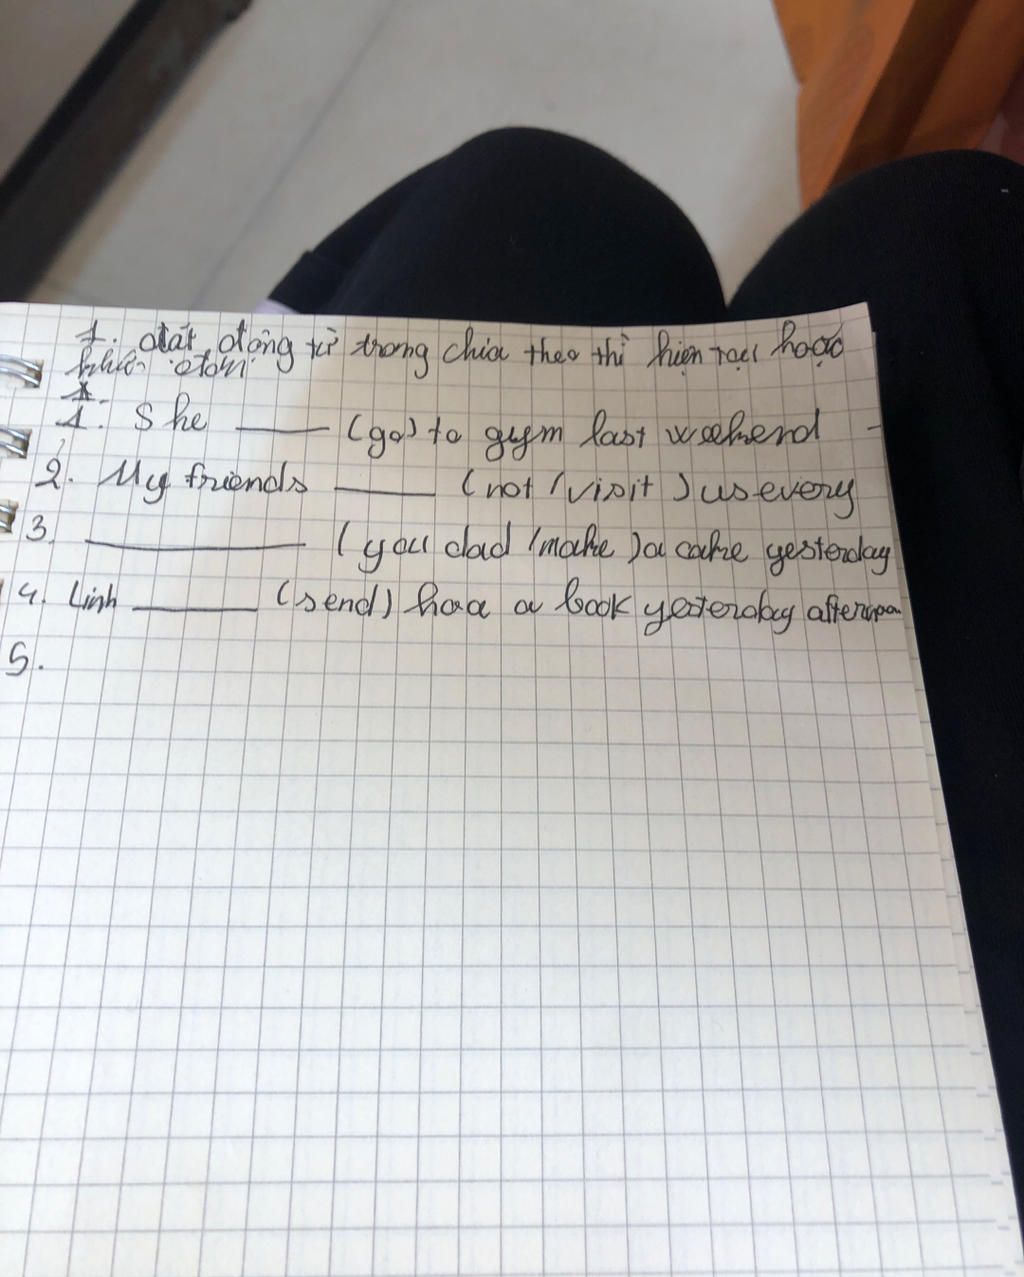 1. đặt động từ trong chia theo thì hiện tại hoặc
đơn.
1. She ____ (go) to gym last weekend
2. My friends ____ (not / visit) us every
3. ____ (you dad / make) a cake yesterday
4. Linh ____ (send) hoa a book yesterday afternoon
5.